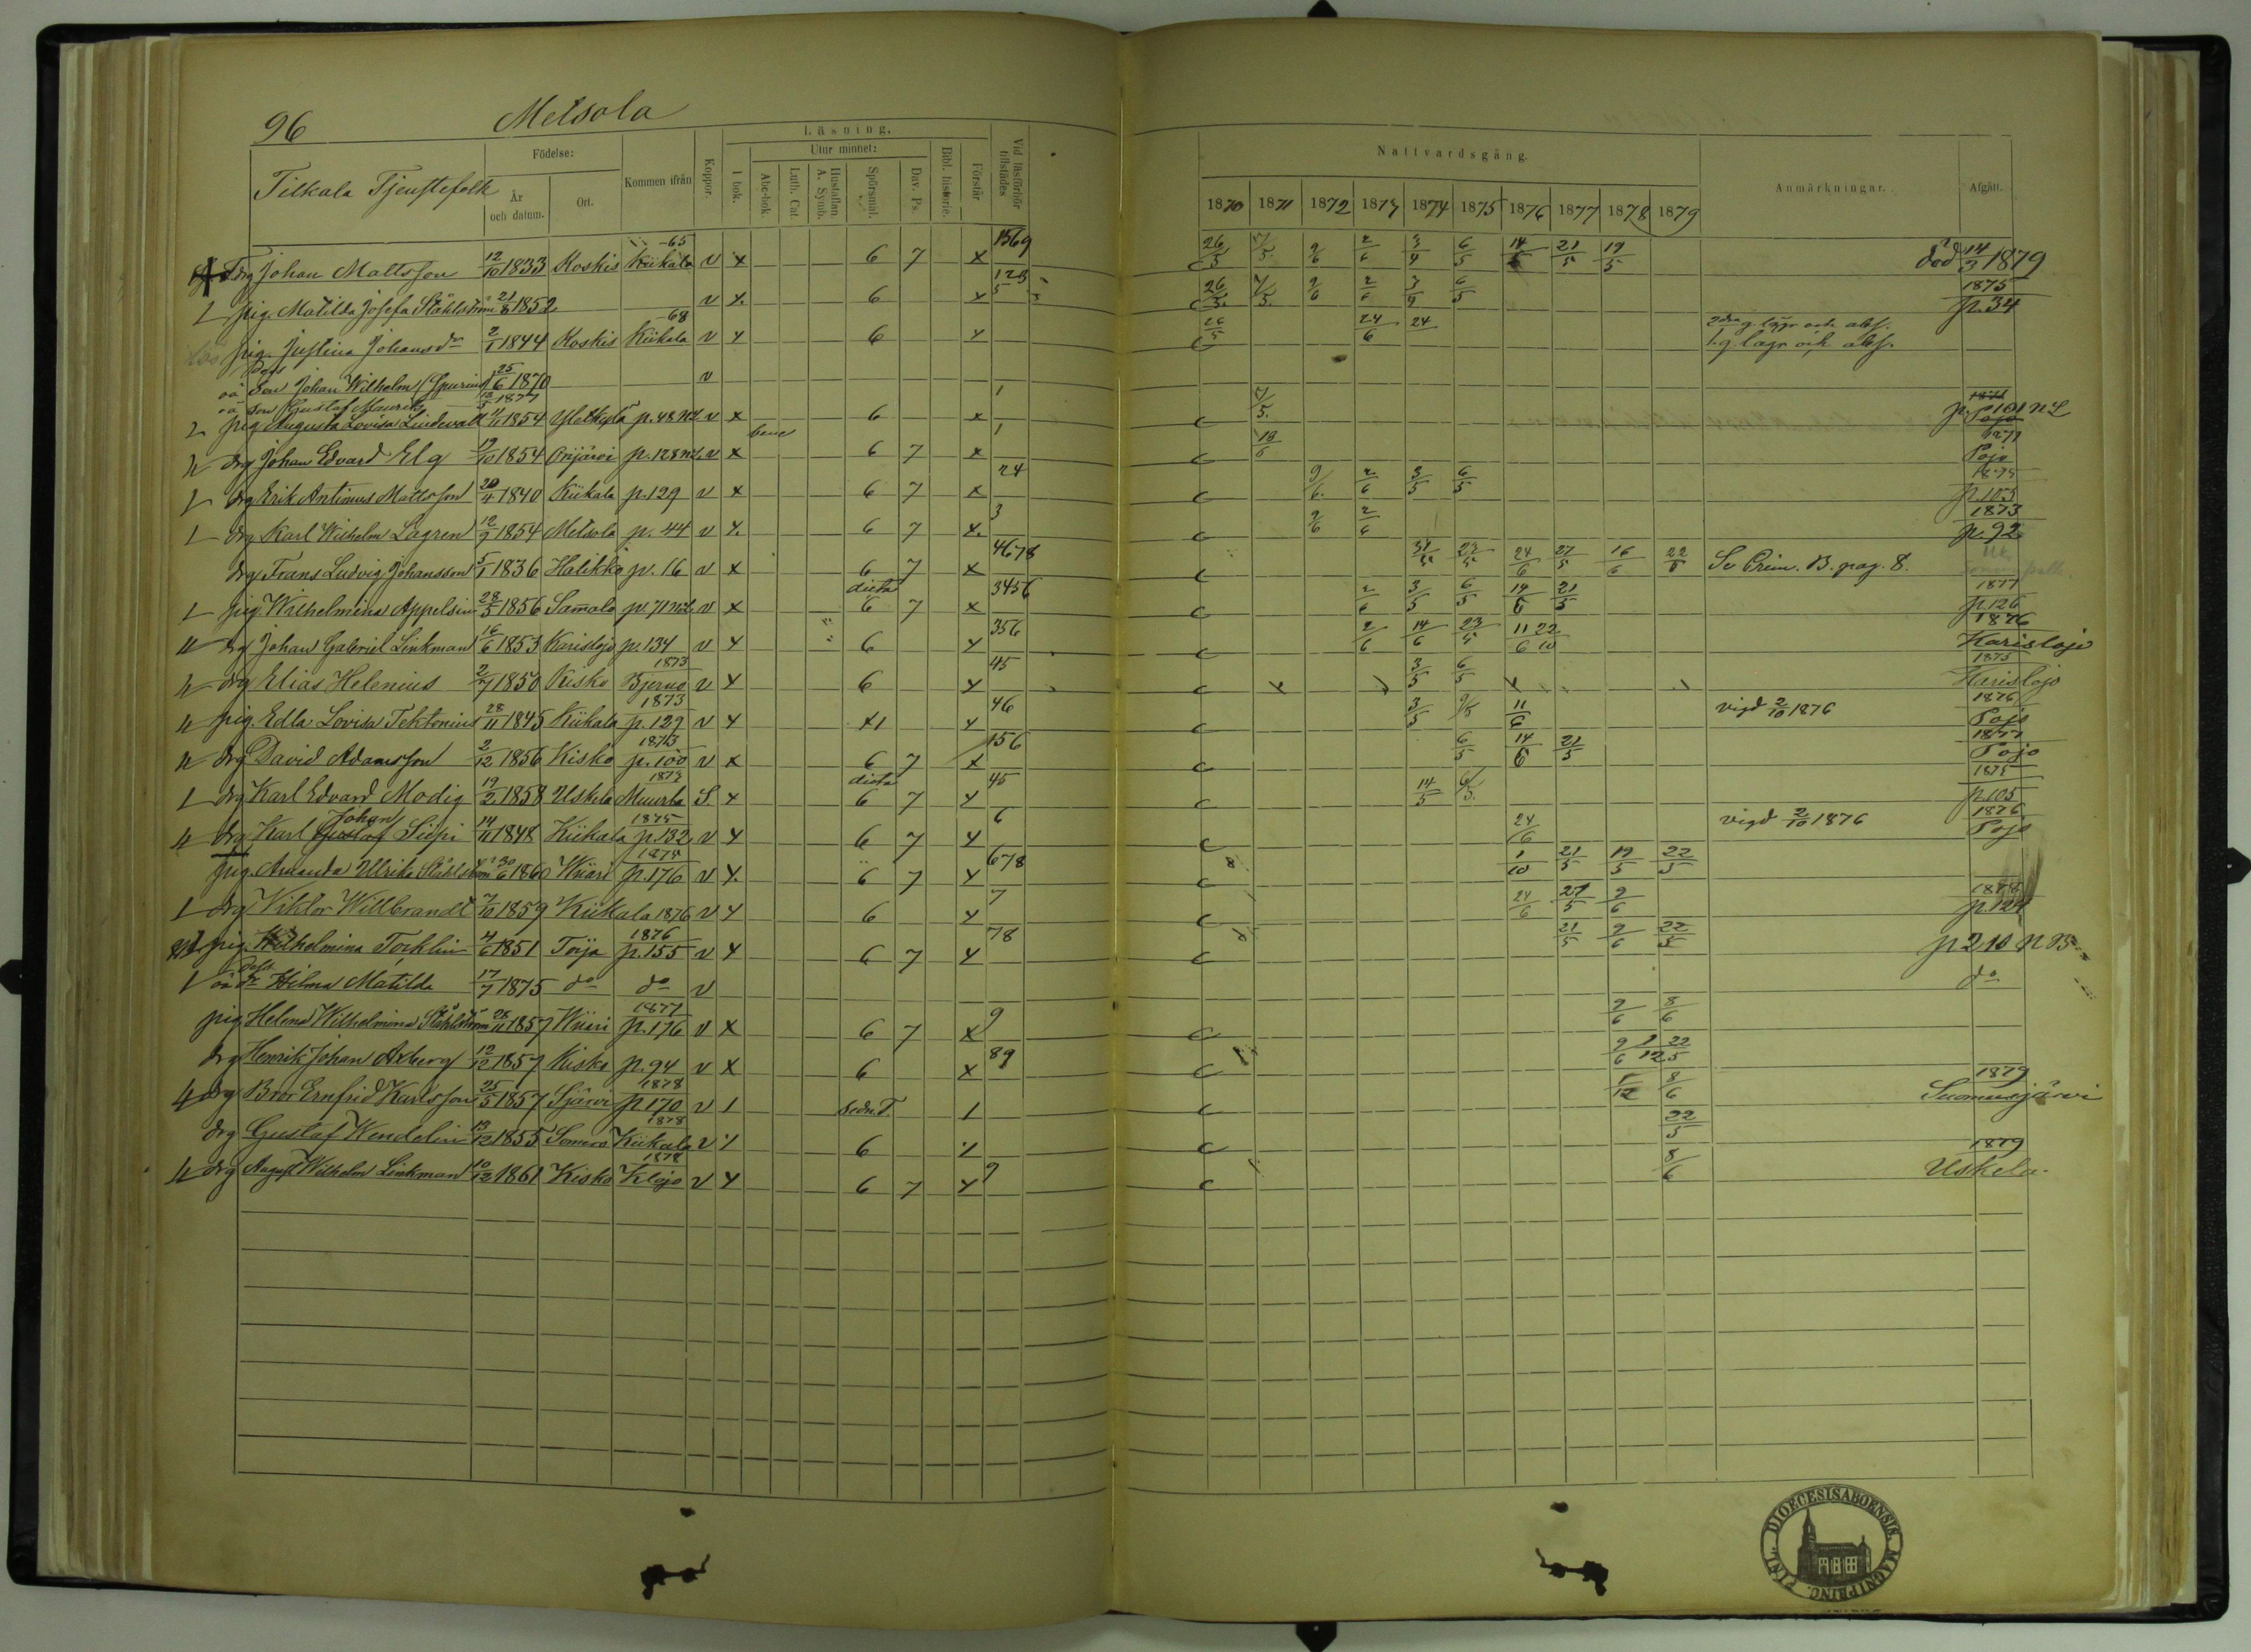 96 Metsola
Tilkala Tjenstefolk
Födelse: År och datum. Ort. Kommen ifrån Koppor. Läsning. I bok. Utur minnet: Abc-bok. Luth. Cat. Hustaflan. A. Symb. Spörsmål. Dav. Ps. Bibl. historie. Förstår Vid läsförhör tillstädes
Nattvardsgång. 1870 1871 1872 1873 1874 1875 1876 1877 1878 1879 Anmärkningar. Afgått.
drg Johan Mattsson 12/10 1833 Koskis -65 Kiikala v x 6 7 x 1569 26/5 9/6 2/6 3/4 6/5 14 21/5 19/5 död 14/3 1879
pig. Matilda Josefa Ståhlström 21/8 1852 v x 6 x 123 5 26/5 9/6 2/6 3/4 6/5 1875 p. 34
pig. Justina Johansdr 2/1 1844 Koskis -68 Kiikala v x 6 x 26/5 24/6 24 2dra g. lägr och abs. 1. g. lägr och abs.
oä Son Johan Wilhelm 25/6 1870 v
oä Son Gustaf Mauritz 1877
pig Augusta Lovisa Lindevall 4/1 1854 p. 48 v x 6 x 1 p. 101 Pojo
drg Johan Edvard Elg 19/10 1854 Orijärvi p. 128 v x bene 6 7 x 1 18/6 1871 Pojo
drg Erik Antinus Mattsson 20/4 1840 Kiikala p. 129 v x 6 7 x 24 9/6 2/6 3/5 6/5 1875 p. 105
drg Karl Wilhelm Lagren 12/9 1854 Metsola p. 44 v x 6 7 x 3 9/6 2/6 1873 p. 92
drg Frans Ludvig Johansson 5/1 1836 Halikko p. 16 v x 6 7 x 4678 24/6 27/5 16/6 22/5 Se Crim. B. pag. 8.
pig. Wilhelmina Appelsin 28/5 1856 Samalo p. 71 v x dicta 6 7 x 3456 2/6 3/5 6/5 14/6 21/5 1877 p. 126
drg Johan Gabriel Linkman 16/6 1853 Karislojo p. 134 v x 6 x 356 2/6 14/6 23/5 11/6 22/10 1876 Karislojo
drg Elias Helenius 2/7 1850 Kisko 1873 Bjerno v x 6 x 45 3/5 6/5 1875 Karislojo
pig. Edla Lovisa Tektonius 28/11 1845 Kiikala 1873 p. 129 v x x1 x 46 3/5 9/5 11/6 vigd 2/10 1876 1876 Pojo
drg David Adamsson 2/12 1856 Kisko 1873 p. 100 v x 6 7 x 156 6/5 14/6 21/5 1877 Pojo
drg Karl Edvard Modig 19/2 1858 Uskela Muurla S. x dicta 6 7 x 45 14/5 6/5 1875 p. 105
drg Karl Gustaf Johan Siöpi 14/11 1848 Kiikala 1875 p. 132 v x 6 7 x 6 24/6 vigd 2/10 1876 1876 Pojo
pig. Amanda Ulrika Ståhlström 1860 Wiiari 1874 p. 176 v x 6 7 x 678 1/10 21/5 19/5 22/5
drg Viktor Willbrandt 7/10 1859 Kiikala 1876 v x 6 x 7 24/6 27/5 2/6 1878 p. 124
pig. Wilhelmina Törklin 4/6 1851 Toija 1876 p. 155 v x 6 7 x 78 21/5 2/6 22/5 p 210 N B
oä dr Hilma Matilda 17/7 1875 do do v do
pig Helena Wilhelmina Ståhlström 1857 Wiiari 1877 p. 176 v x 6 7 x 9 2/6 8/6
drg Henrik Johan Axberg 12/12 1857 Kisko p. 94 v x 6 x 89 9/6 1/12 22/5
drg Bror Ernfrid Karlsson 25/5 1857 Sjärvi 1878 p. 170 v 1 1 1/12 8/6 1879 Suomusjärvi
drg Gustaf Wendelin 13/12 1855 Somero 1878 Kiikala v 6 22/5
drg August Wilhelm Linkman 10/12 1861 Kisko 1878 Klojo v x 6 7 x 9 8/6 1879 Uskela
DIOECESIS ABOENSIS. MAGNI PRINC. FINL.